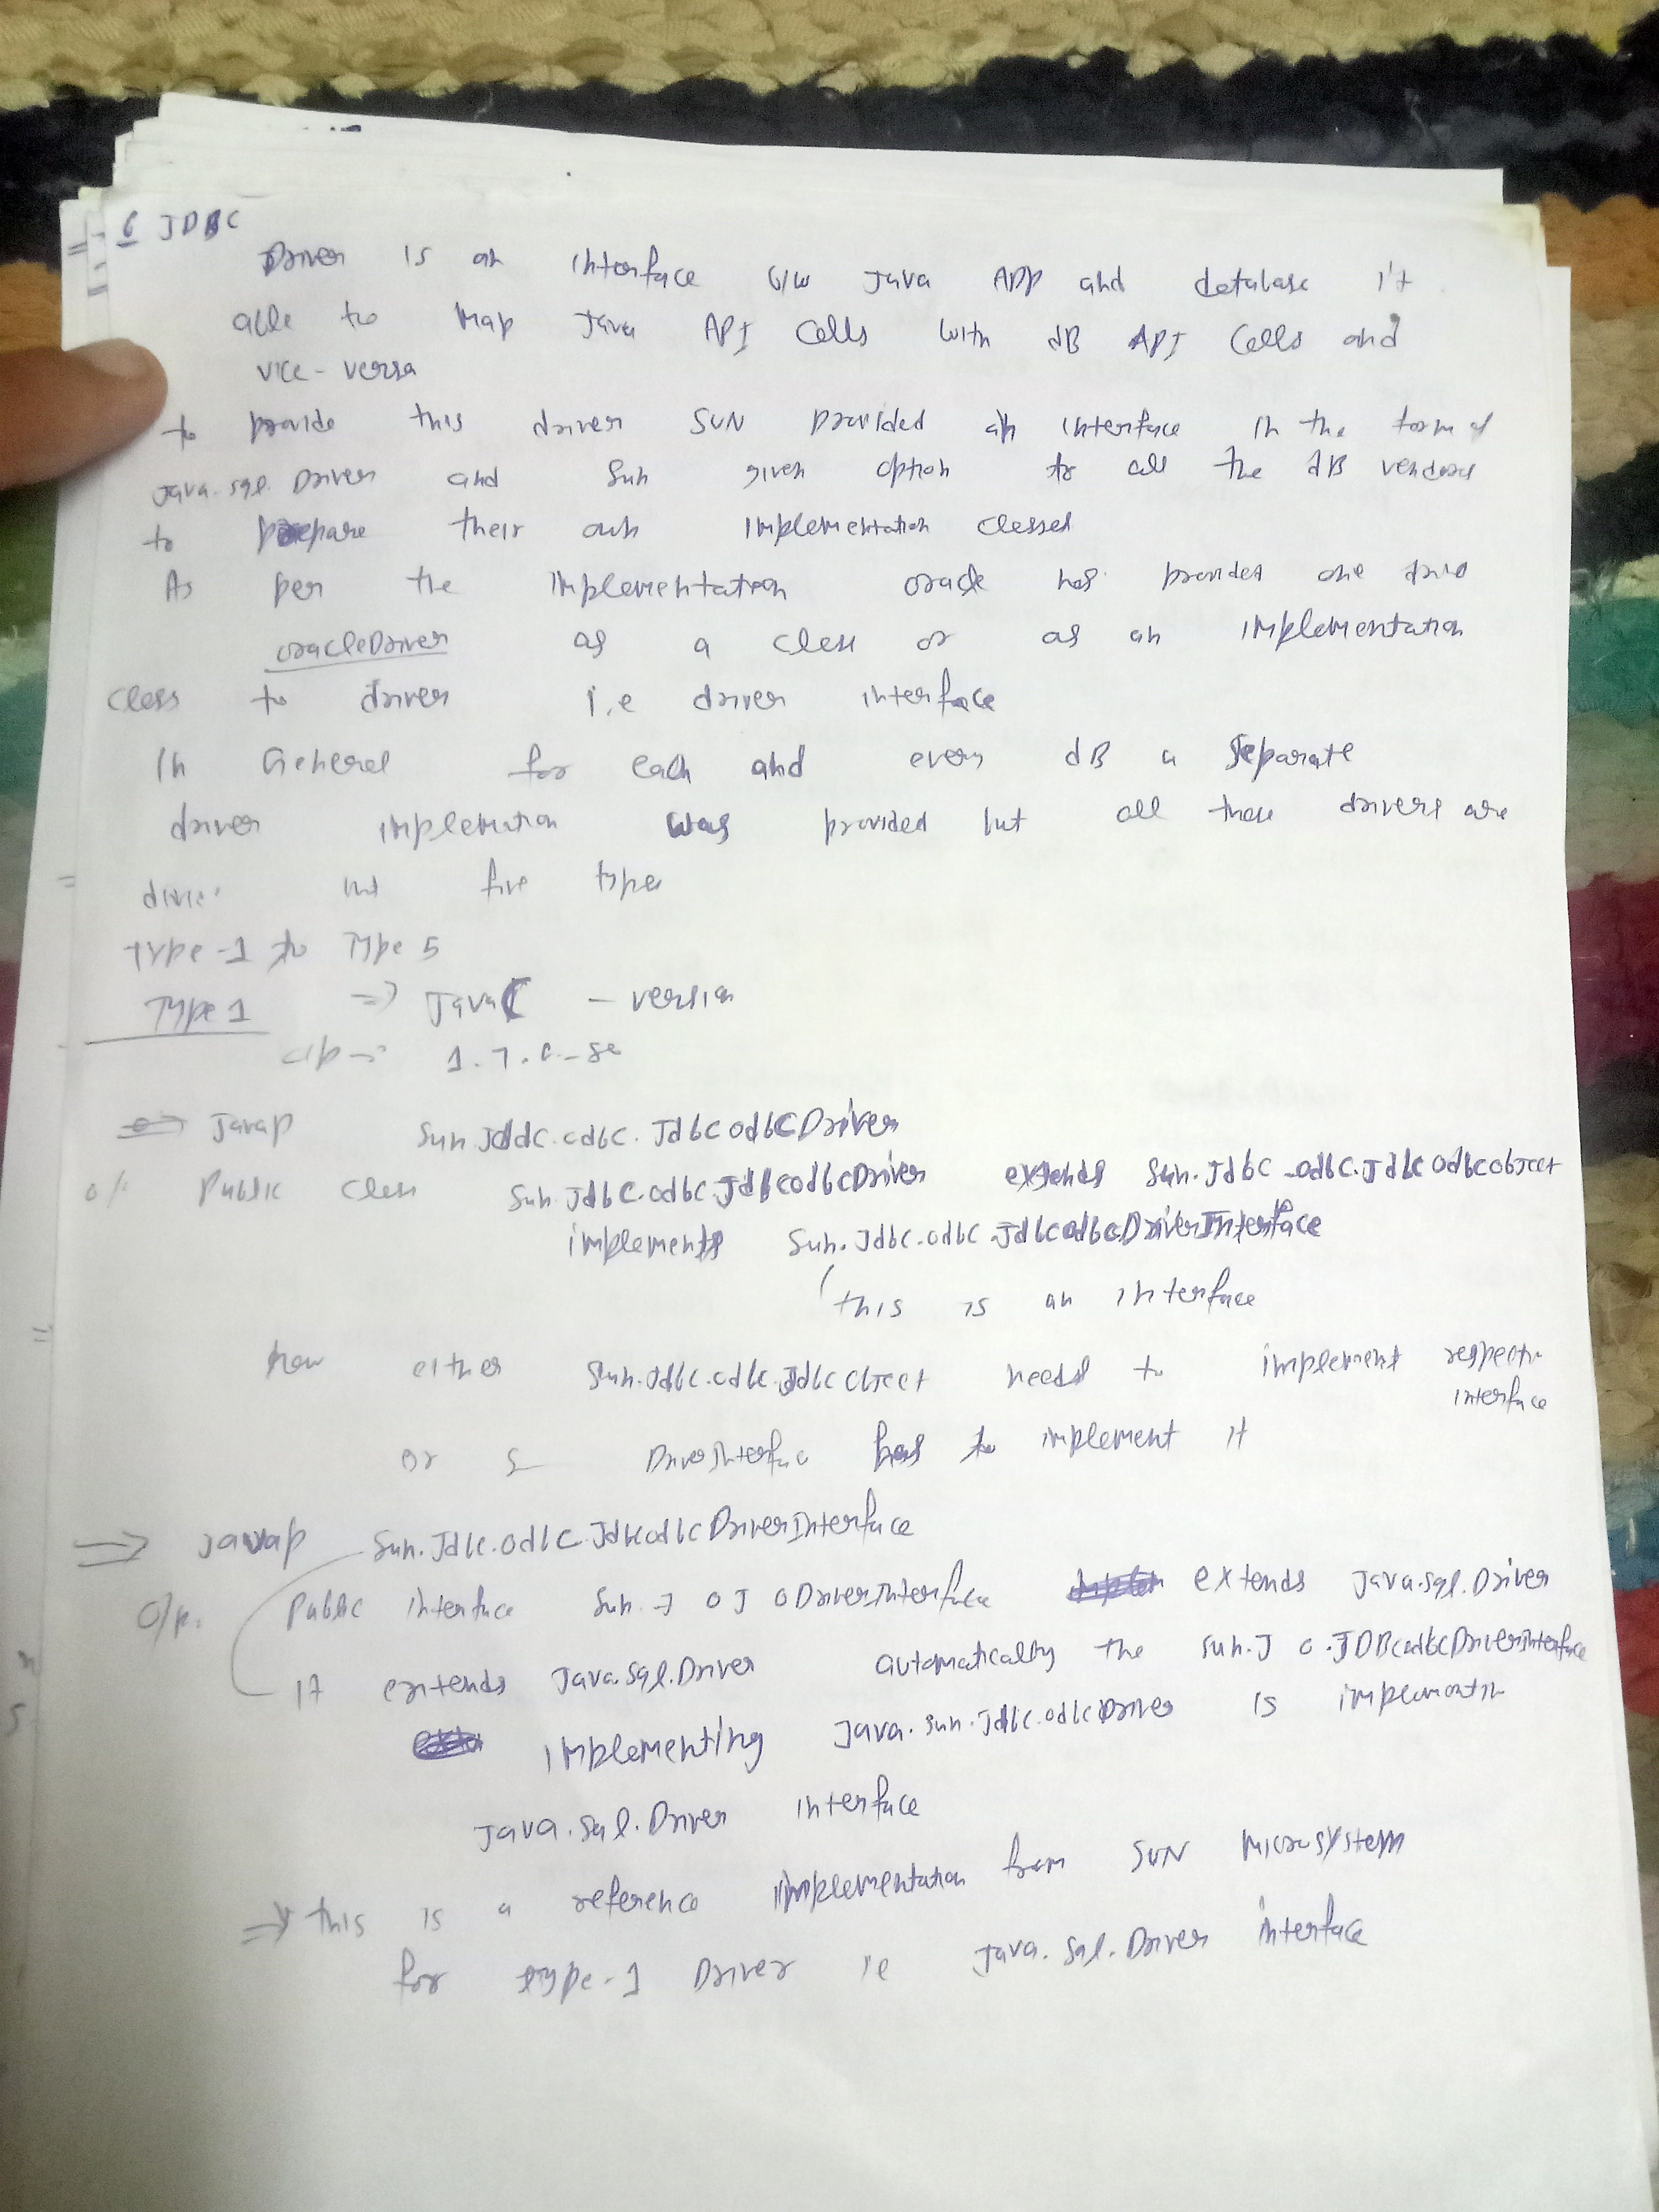 6 JDBC
Driver is an interface b/w Java App and database it
able to map Java API calls with dB API calls and
vice-versa
to provide this driver SUN provided an interface in the form of
Java.sql.Driver and Sun given option to all the dB vendors
to prepare their own implementation classes
As per the implementation oracle has provided one
oracleDriver as a class or as an implementation
class to driver i.e driver interface
In General for each and every dB a separate
driver implemetation was provided but all these drivers are
five types
Type-1 to Type 5
Type 1 => Java - version
1.7.0-
=> Javap Sun.Jdbc.odbc.JdbcodbcDriver
o/ Public class Sun.Jdbc.odbc.JdbcodbcDriver extends Sun.Jdbc.odbc.Jdbcodbcobject
implements Sun.Jdbc.odbc.JdbcodbcDriverInterface
this is an interface
either needs to implement
interface
or DriverInterface has to implement it
=> Javap Sun.Jdbc.odbc.JdbcodbcDriverInterface
O/p. Public interface Sun.J O J O DriverInterface extends Java.sql.Driver
It extends Java.sql.Driver automatically the Sun.J o.JDBCodbcDriverinterface
implementing Java.sun.Jdbc.odbcDriver is
Java.sql.Driver interface
=> this is a reference implementation from SUN Microsystem
for type-1 Driver ie Java.sql.Driver interface